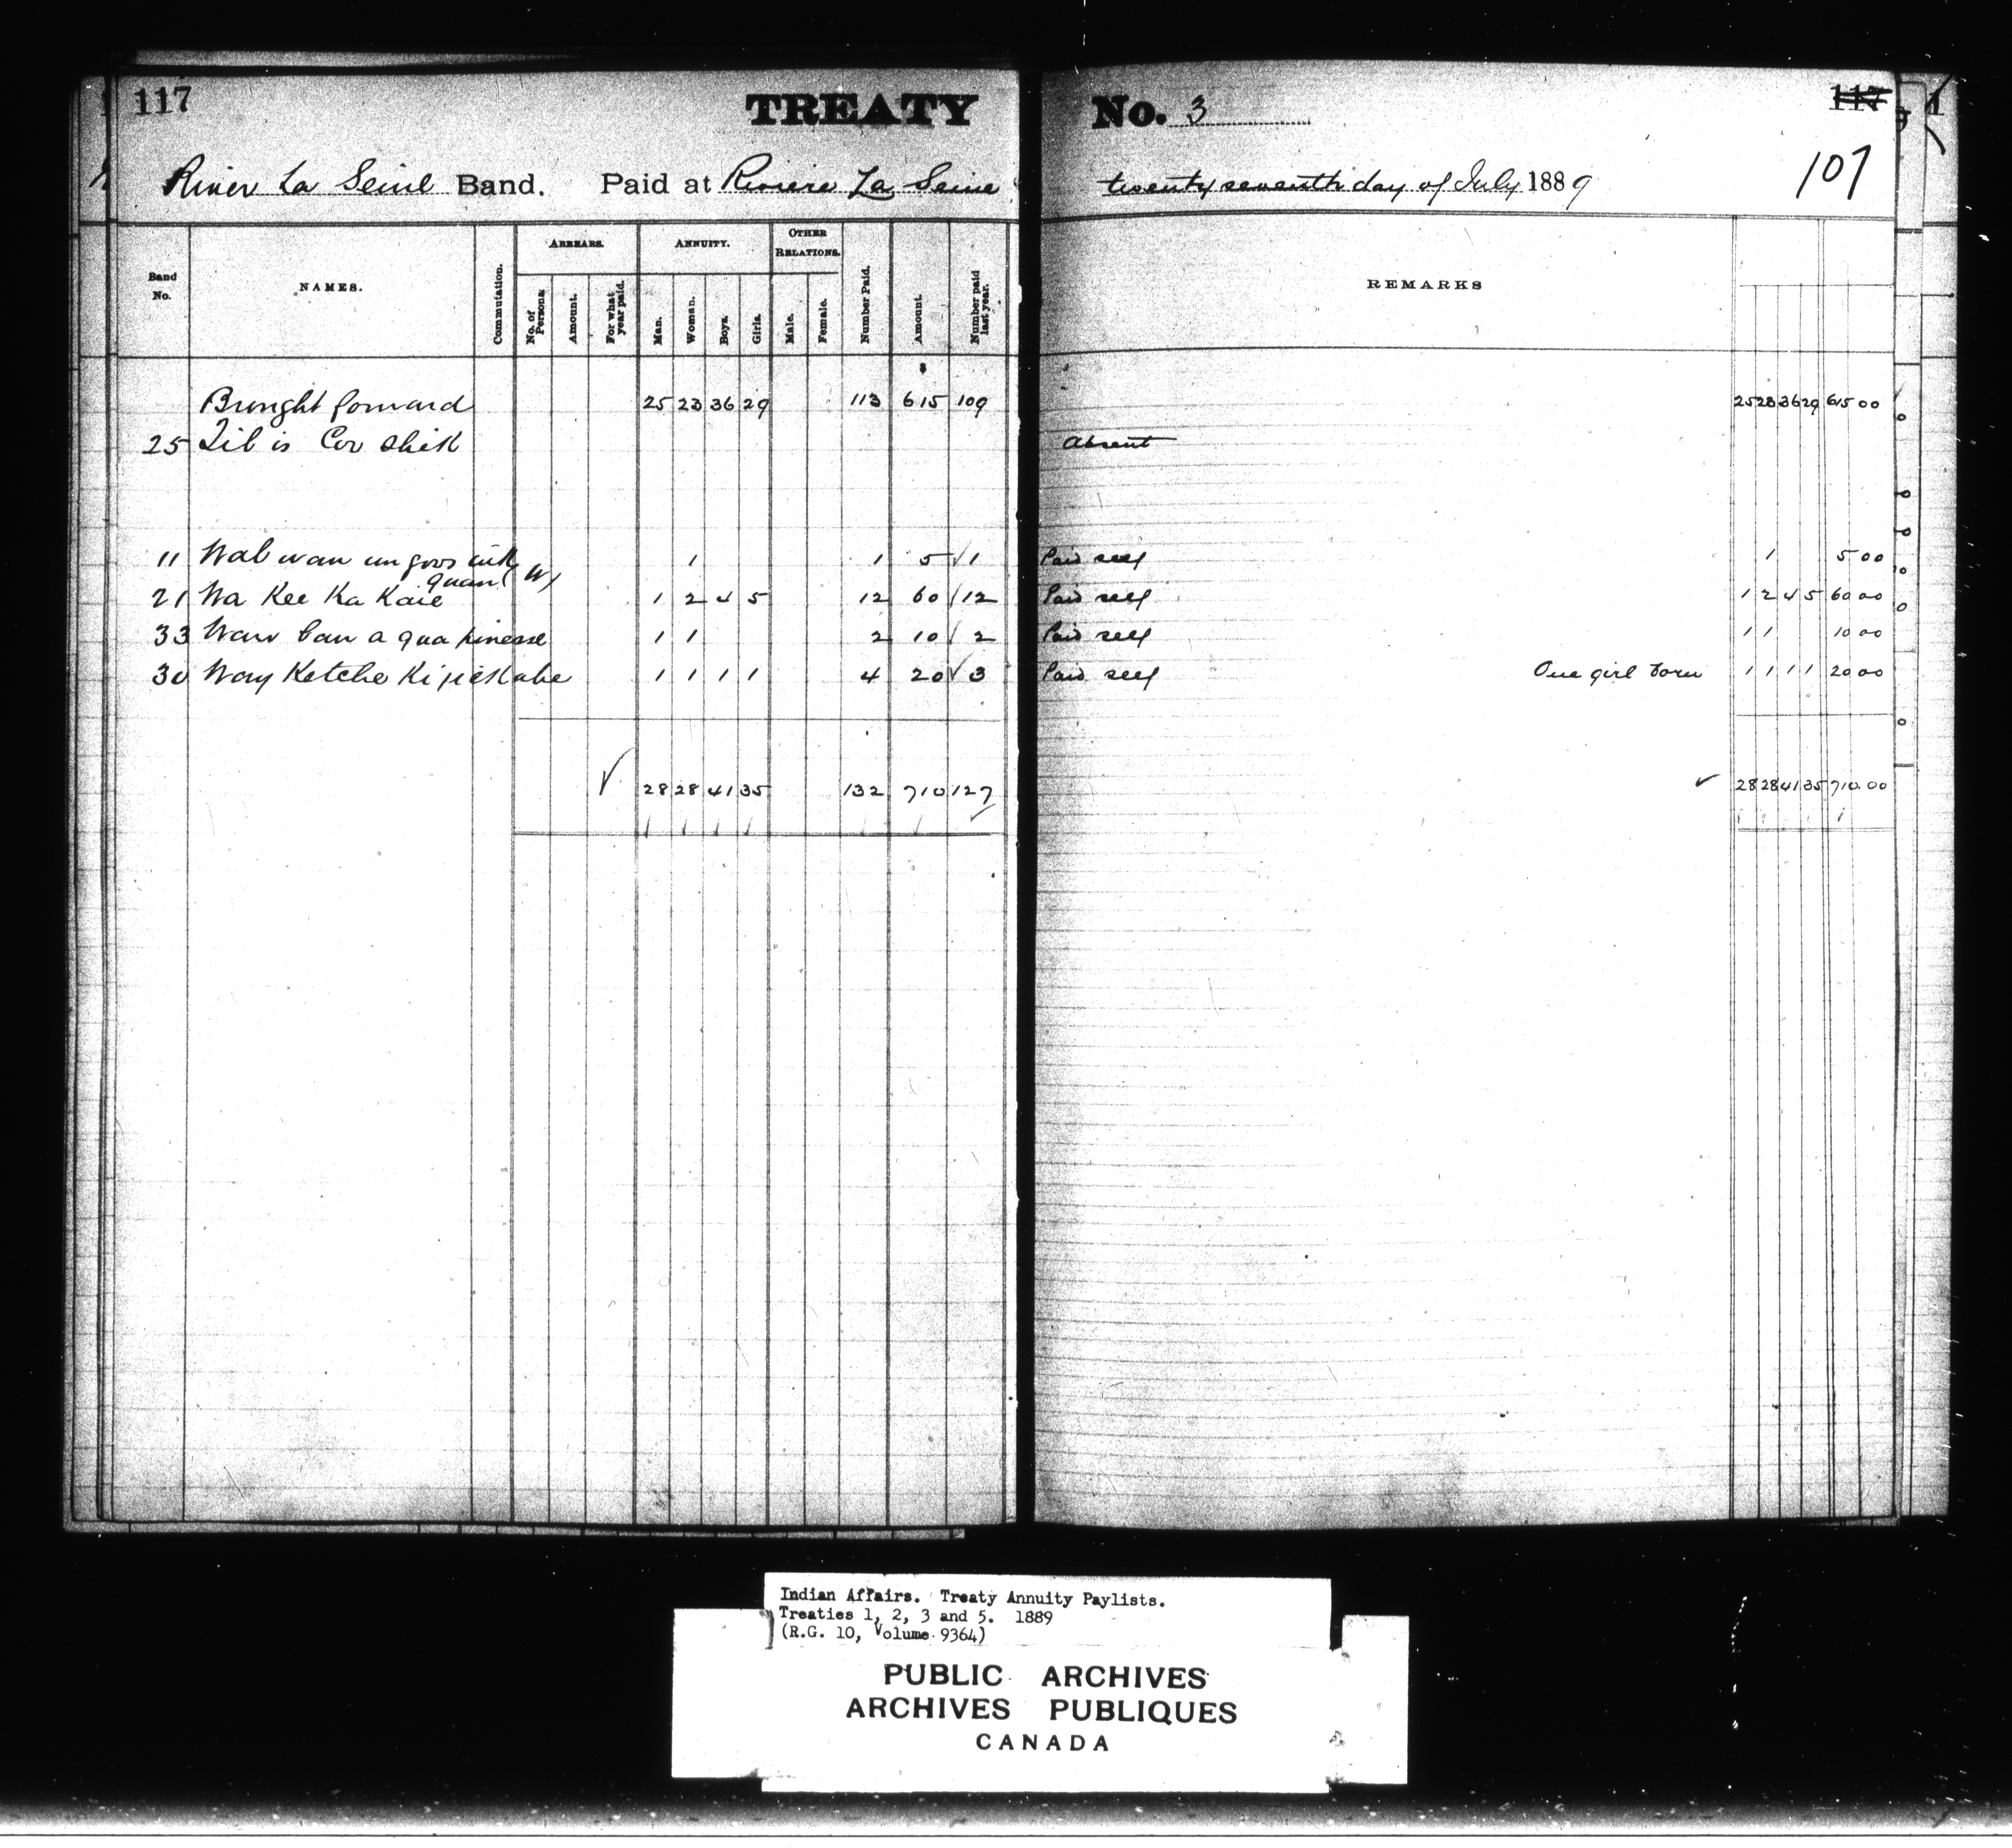 117 TREATY No. 3 117
107
River La Seine Band. Paid at Riviere La Seine twenty seventh day of July 1889
Band No. NAMES. Commutation. ARREARS. No. of Persons. Amount. For what year paid. ANNUITY. Man. Woman. Boys. Girls. OTHER RELATIONS. Male. Female. Number Paid. Amount. Number paid last year. REMARKS
Brought forward 25 23 36 29 113 615 109 25 23 36 29 615 00
25 Tib is Coo shik Absent
11 Wab wan un goos cuk 1 1 5 √ 1 Paid self 1 5 00
quan (W)
21 Wa Kee Ka Kaie 1 2 4 5 12 60 / 12 Paid self 1 2 4 5 60 00
33 Waw ban a qua pinesse 1 1 2 10 √ 2 Paid self 1 1 10 00
30 Way Ketche Kijickabe 1 1 1 1 4 20 √ 3 Paid self One girl born 1 1 1 1 20 00
√ 28 28 41 35 132 710 127 √ 28 28 41 35 710.00
Indian Affairs. Treaty Annuity Paylists.
Treaties 1, 2, 3 and 5. 1889
(R.G. 10, Volume 9364)
PUBLIC ARCHIVES
ARCHIVES PUBLIQUES
CANADA